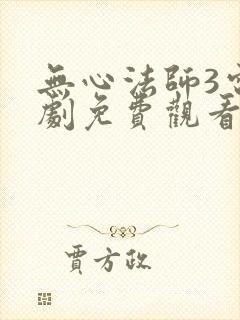 無心法師3電
劇免費觀看
賈方政